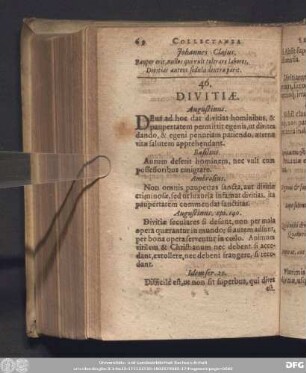 62 COLLECTANEA
Johannes Clajus.
Pauper erit, nullos qui vult tolerare labores,
Divitias autem sedula dextra parit.
46.
DIVITIÆ.
Augustinus.
DEus ad hoc dat divitias hominibus, &
paupertatem permittit egenis, ut divites
dando, & egeni penuriam patiendo, æternæ
vitæ salutem apprehendant.
Basilius.
Aurum deserit hominem, nec vult cum
possessoribus emigrare.
Ambrosius.
Non omnis paupertas sancta, aut divitiæ
criminosæ, sed ut luxuria infamat divitias, ita
paupertatem commendat sanctitas.
Augustinus, epi. 140.
Divitiæ seculares si desunt, non per mala
opera quærantur in mundo; si autem adsunt,
per bona opera serventur in coelo. Animum
virilem & Christianum nec debent si accedant,
extollere, nec debent frangere, si recedant.
Idem ser.
Difficile est, ut non sit superbus, qui dives